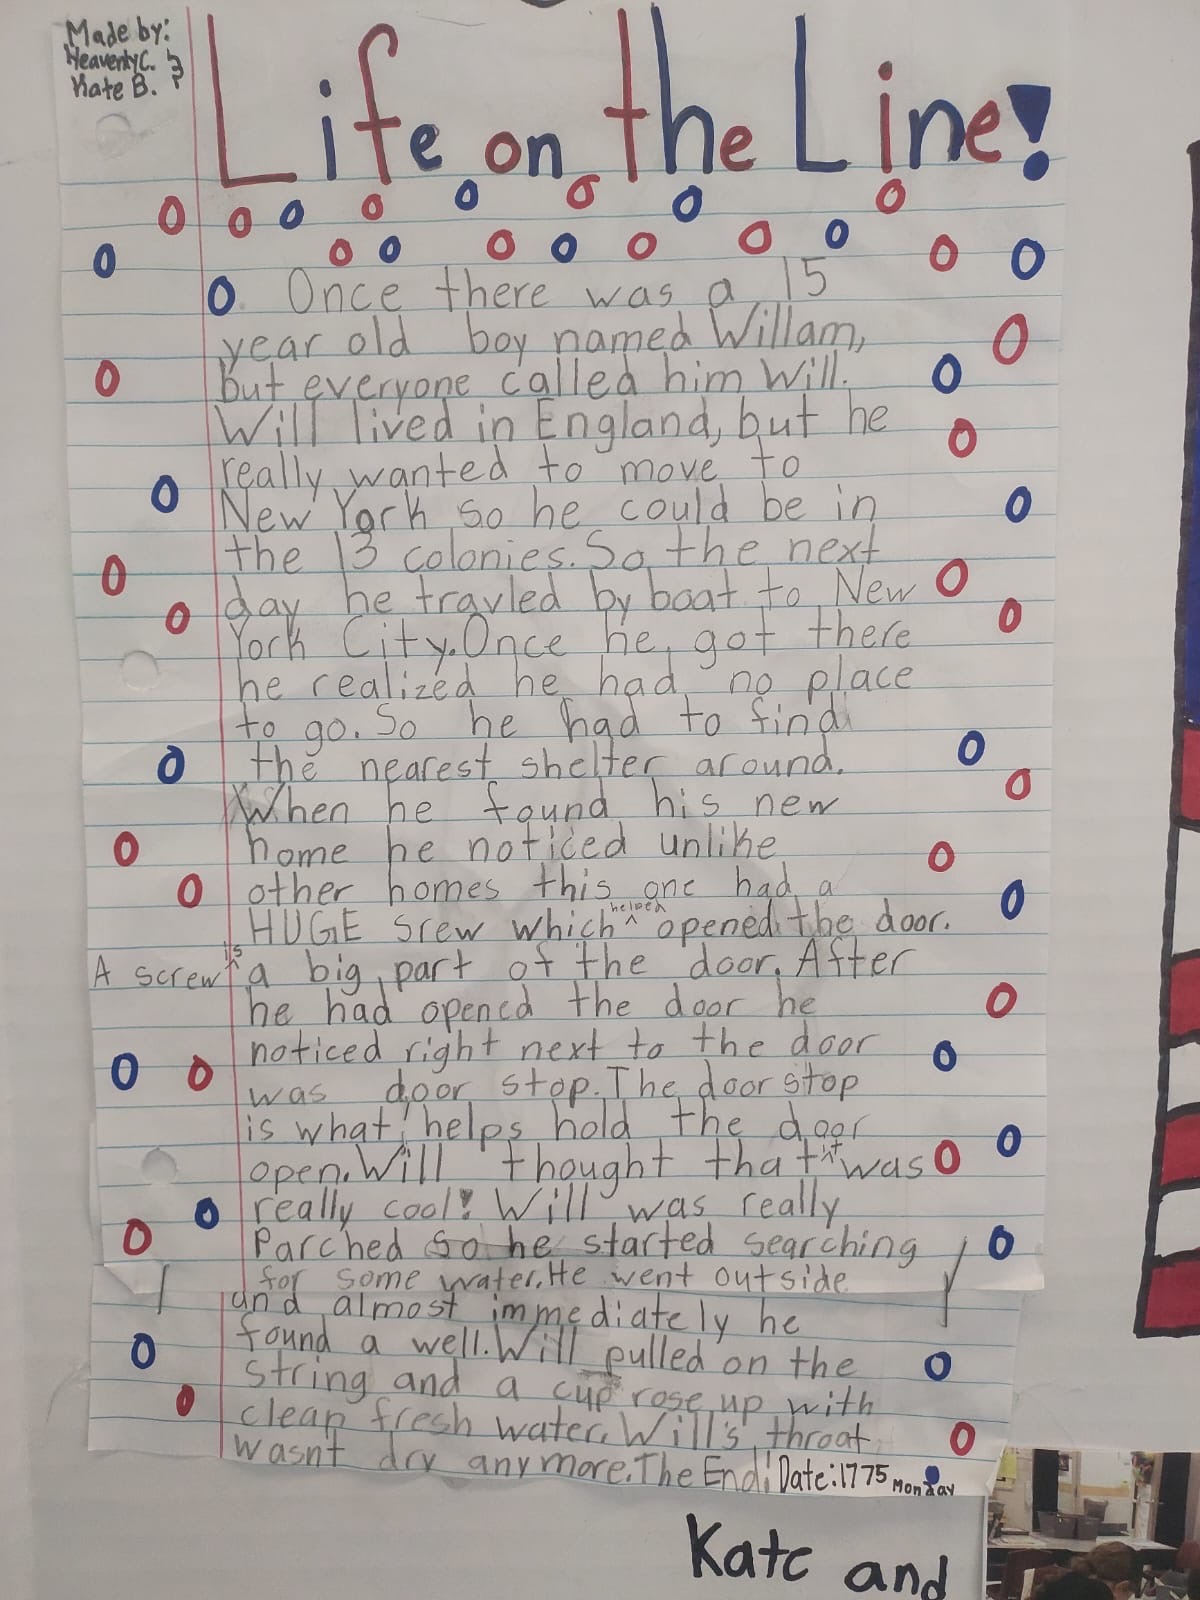 Made by:
Heavenly C. &
Kate B.
Life on the Line!
Once there was a 15
year old boy named Willam,
but everyone called him Will.
Will lived in England, but he
really wanted to move to
New York so he could be in
the 13 colonies. So the next
day he travled by boat to New
York City. Once he got there
he realized he had no place
to go. So he had to find
the nearest shelter around.
When he found his new
home he noticed unlike
other homes this one had a
HUGE Srew which ^helped opened the door.
A screw ^is a big part of the door. After
he had opened the door he
noticed right next to the door
was door stop. The door stop
is what helps hold the door
open. Will thought that ^it was
really cool! Will was really
Parched so he started searching
for some water. He went outside
and almost immediately he
found a well. Will pulled on the
string and a cup rose up with
clean fresh water. Will's throat
wasnt dry anymore. The End! Date: 1775 Monday
Kate and